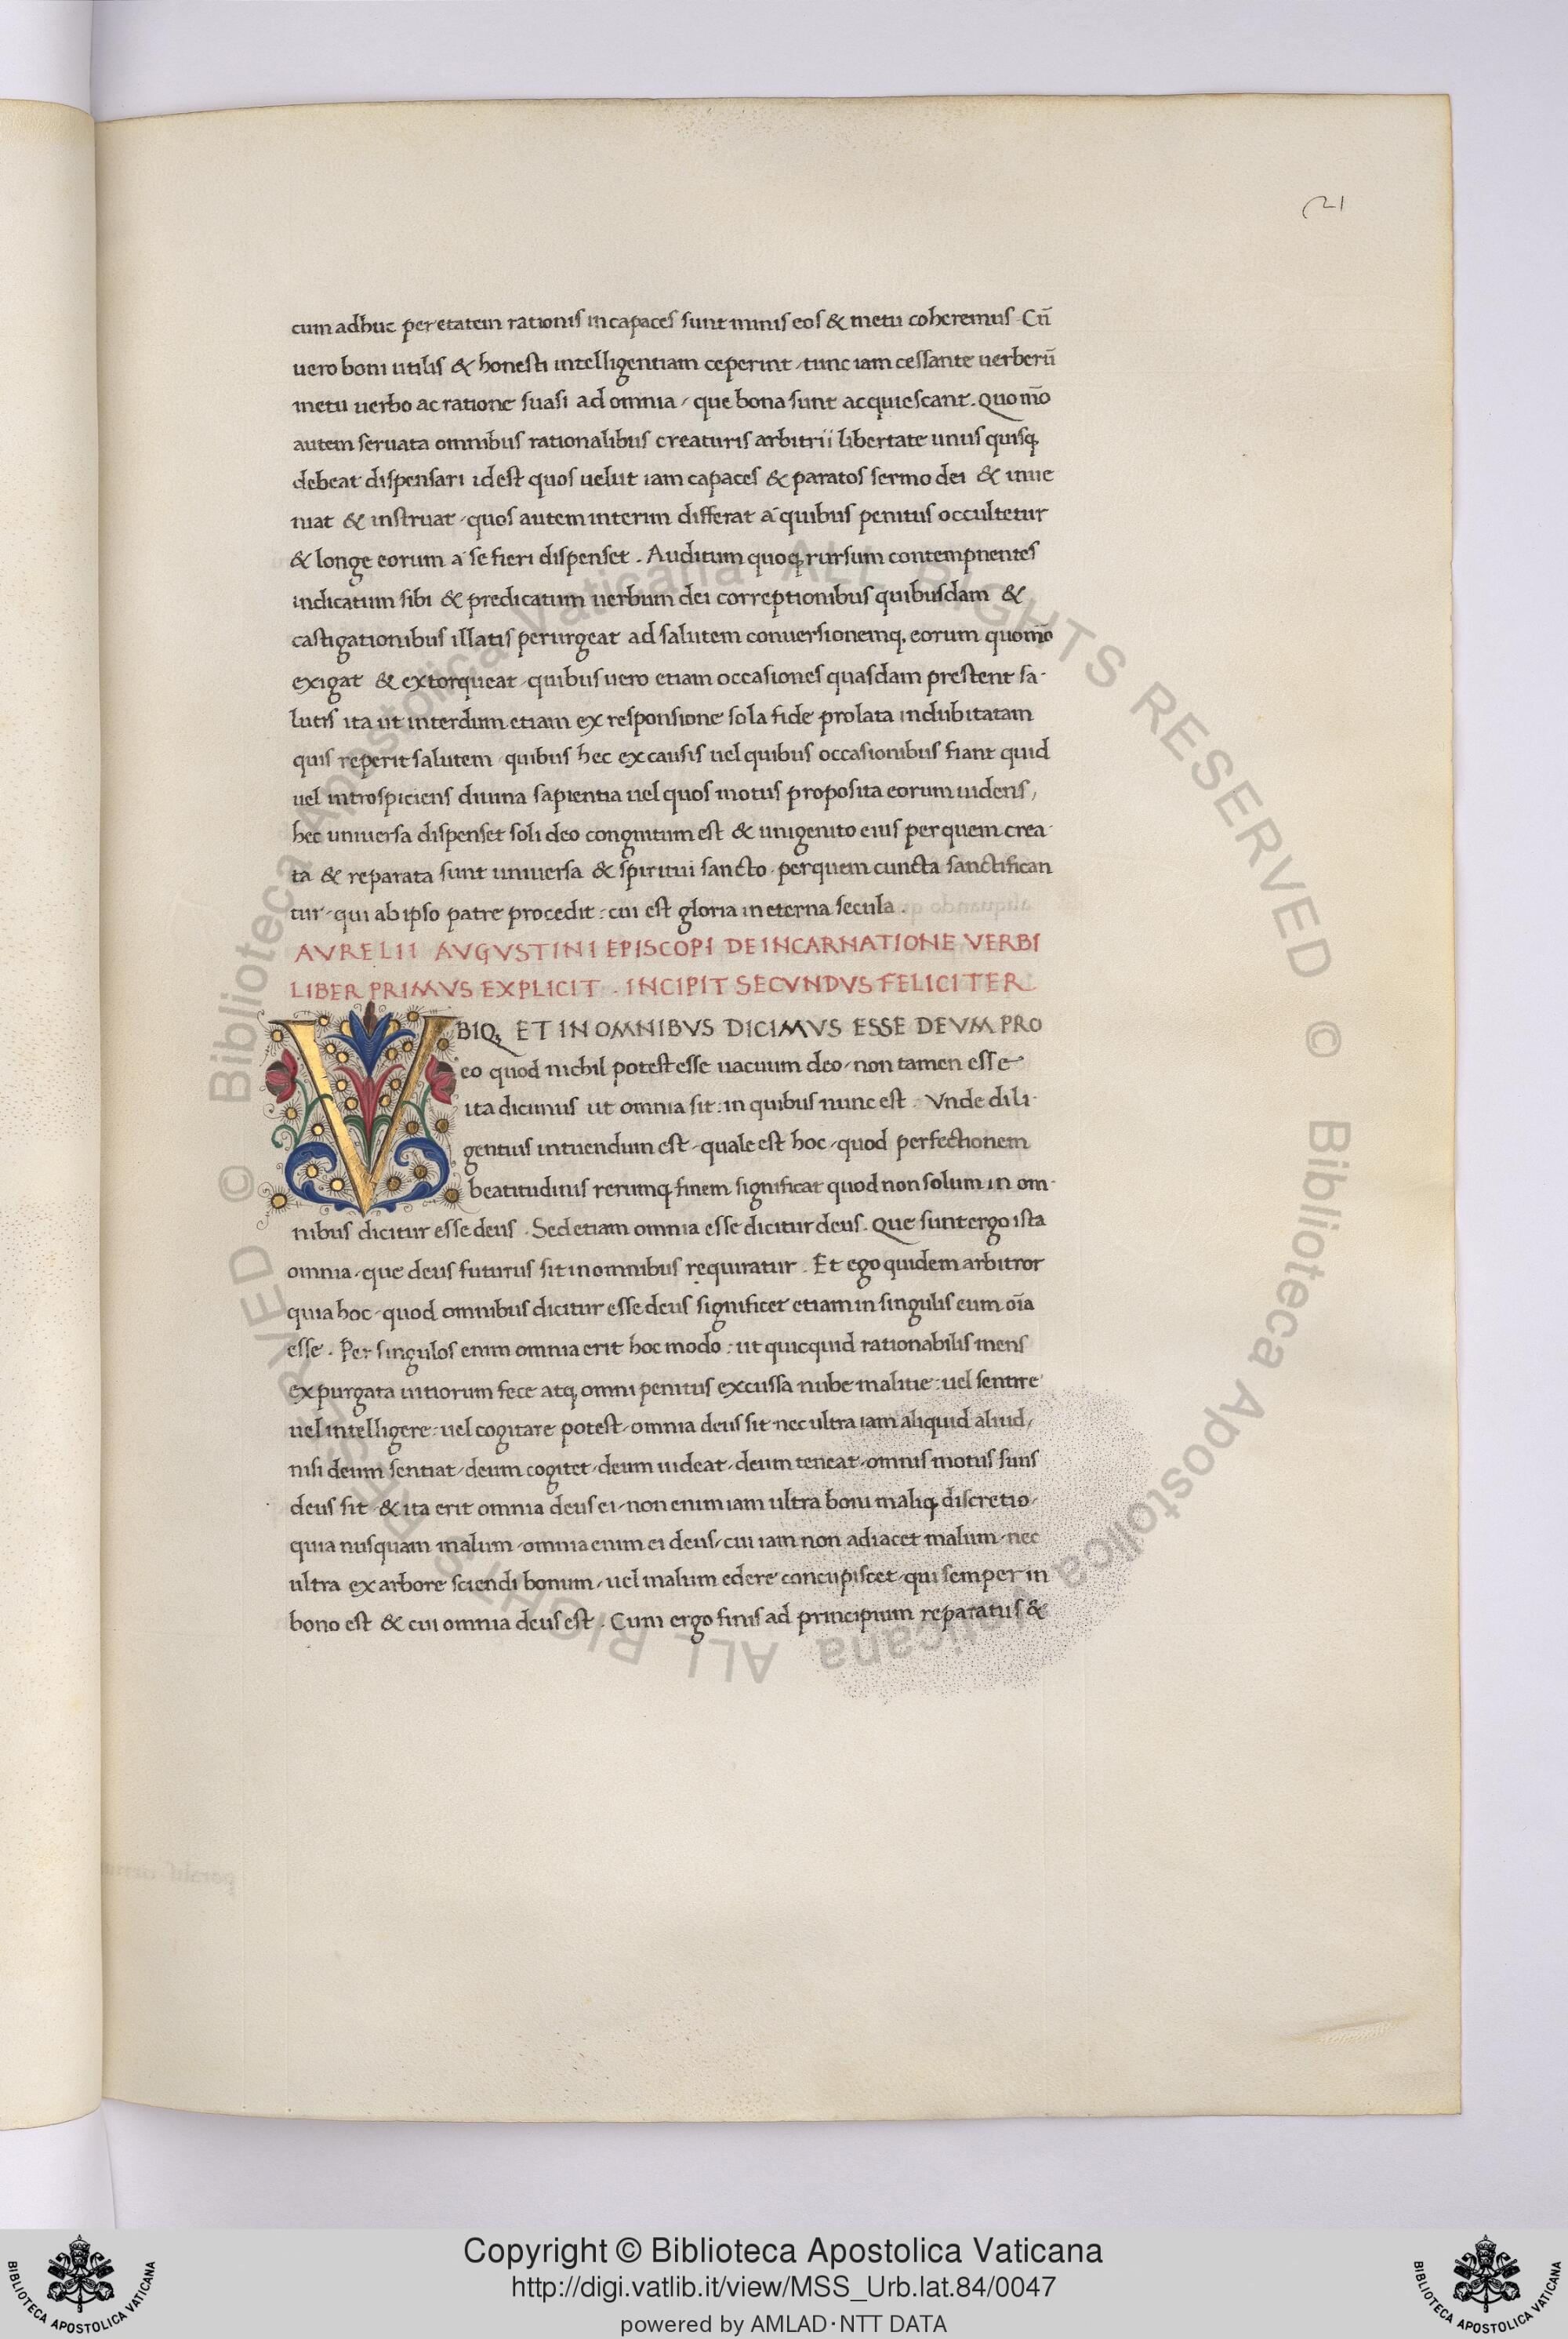 21
cum adhuc per etatem rationis incapaces sunt minis eos & metu coheremus. Cū
uero boni utilis & honesti intelligentiam ceperint, tunc iam cessante uerberū
metu uerbo ac ratione suasi ad omnia, que bona sunt acquiescant. Quom̄o
autem seruata omnibus rationalibus creaturis arbitrii libertate unus quisq;
debeat dispensari idest quos uelut iam capaces & paratos sermo dei & inue
niat & instruat, quos autem interim differat a quibus penitus occultetur
& longe eorum a se fieri dispenset. Auditum quoq; rursum contempnentes
indicatum sibi & predicatum uerbum dei correptionibus quibusdam &
castigationibus illatis perurgeat ad salutem conuersionemq; eorum quom̄o
exigat & extorqueat, quibus uero etiam occasiones quasdam prestent sa-
lutis ita ut interdum etiam ex responsione sola fide prolata indubitatam
quis reperit salutem, quibus hec ex causis uel quibus occasionibus fiant quid
uel introspiciens diuina sapientia uel quos motus proposita eorum uidens,
hec uniuersa dispenset soli deo congnitum est & unigenito eius per quem crea-
ta & reparata sunt uniuersa & spiritui sancto, per quem cuncta sanctifican
tur, qui ab ipso patre procedit: cui est gloria in eterna secula.
AVRELII AVGVSTINI EPISCOPI DE INCARNATIONE VERBI
LIBER PRIMVS EXPLICIT. INCIPIT SECVNDVS FELICITER
VBIQ; ET IN OMNIBVS DICIMVS ESSE DEVM PRO
eo quod nichil potest esse uacuum deo, non tamen esse
ita dicimus ut omnia sit: in quibus nunc est. Vnde dili-
gentius intuendum est, quale est hoc, quod perfectionem
beatitudinis rerumq; finem significat quod non solum in om-
nibus dicitur esse deus. Sed etiam omnia esse dicitur deus. Que sunt ergo ista
omnia, que deus futurus sit in omnibus requiratur. Et ego quidem arbitror
quia hoc, quod omnibus dicitur esse deus significet etiam in singulis eum oīa
esse. Per singulos enim omnia erit hoc modo: ut quicquid rationabilis mens
expurgata uitiorum fece atq; omni penitus excussa nube malitie: uel sentire
uel intelligere: uel cogitare potest, omnia deus sit nec ultra iam aliquid aliud,
nisi deum sentiat, deum cogitet, deum uideat, deum teneat, omnis motus suus
deus sit, & ita erit omnia deus ei, non enim iam ultra boni maliq; discretio,
quia nusquam malum, omnia enim ei deus, cui iam non adiacet malum, nec
ultra ex arbore sciendi bonum, uel malum edere concupiscet, qui semper in
bono est & cui omnia deus est. Cum ergo finis ad principium reparatus &
© Biblioteca Apostolica Vaticana ALL RIGHTS RESERVED © Biblioteca Apostolica Vaticana ALL RIGHTS RESERVED
Copyright © Biblioteca Apostolica Vaticana
http://digi.vatlib.it/view/MSS_Urb.lat.84/0047
powered by AMLAD·NTT DATA
BIBLIOTECA APOSTOLICA VATICANA
BIBLIOTECA APOSTOLICA VATICANA